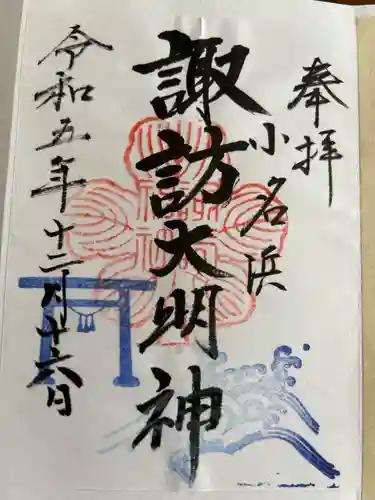 奉拝
小名浜
諏訪大明神
令和五年十二月十六日